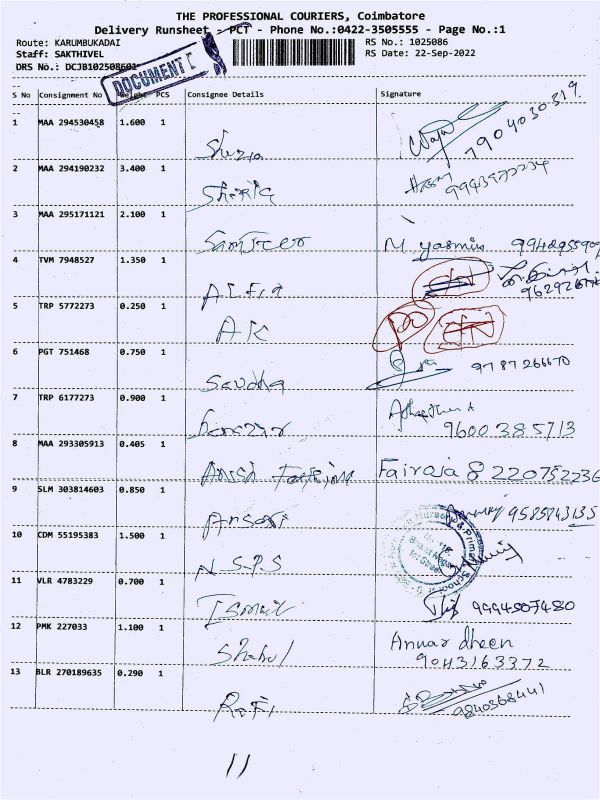 THE PROFESSIONAL COURIERS, Coimbatore
Delivery Runsheet - PCT - Phone No.:0422-3505555 - Page No.:1
Route: KARUMBUKADAI RS No.: 1025086
Staff: SAKTHIVEL RS Date: 22-Sep-2022
DRS No.: DCJB102508601
DOCUMENT
S No Consignment No Weight PCS Consignee Details Signature
1 MAA 294530458 1.600 1 7904030319
2 MAA 294190232 3.400 1
3 MAA 295171121 2.100 1 M yasmin
4 TVM 7948527 1.350 1 ALFia
5 TRP 5772273 0.250 1 AK
6 PGT 751468 0.750 1 Saudha 9787266670
7 TRP 6177273 0.900 1 9600385713
8 MAA 293305913 0.405 1 Fairaja 8220752236
9 SLM 303814603 0.850 1 Ansari 9585843135
10 CDM 55195383 1.500 1 N.S.P.S
11 VLR 4783229 0.700 1 Ismail 9994807480
12 PMK 227033 1.100 1 Shahul Anwar dheen
9043163372
13 BLR 270189635 0.290 1 Rafi 9840368441
11